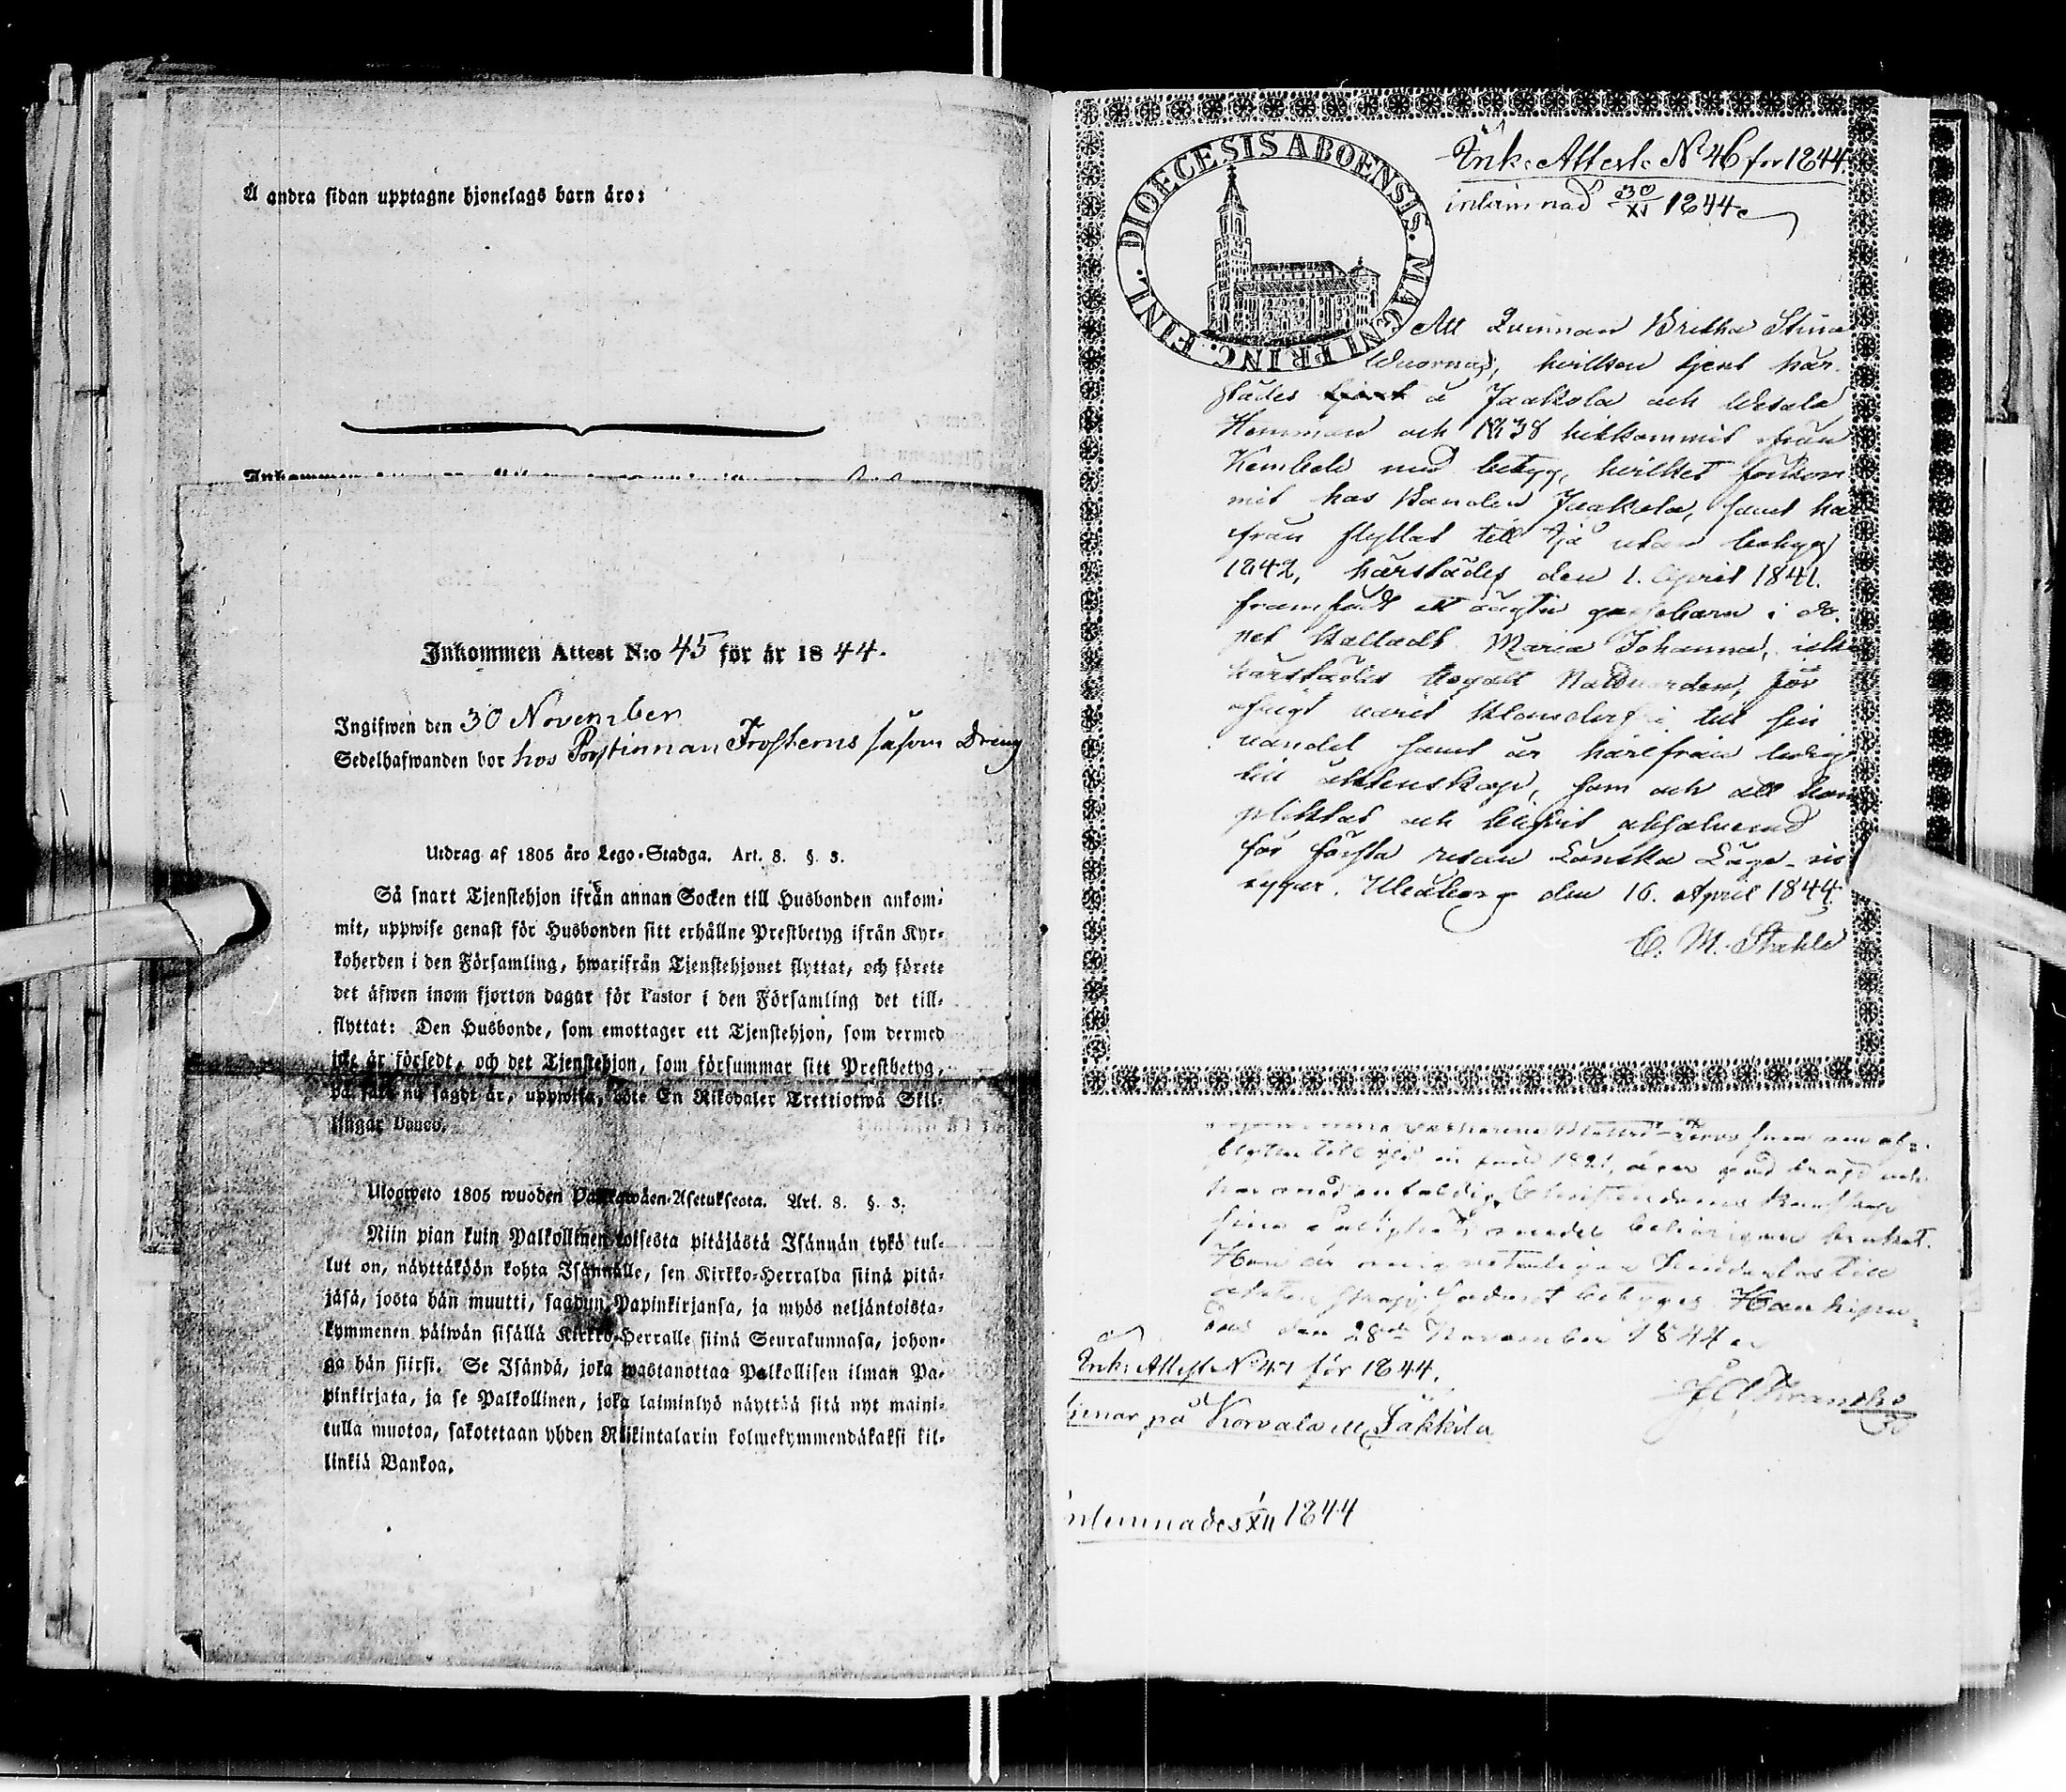 Å andra sidan upptagne hjonelags barn äro:
Inkommen Attest N:o 45 för år 1844.
Ingifwen den 30 November
Sedelhafwanden bor hos Postinman Frosterus såsom Dreng
Utdrag af 1805 åro Lego-Stadga. Art. 8. §. 3.
Så snart Tjenstehjon ifrån annan Socken till Husbonden ankom-
mit, uppwise genast för Husbonden sitt erhållne Prestbetyg ifrån Kyr-
koherden i den Församling, hwarifrån Tjenstehjonet flyttat, och förete
det äfwen inom fjorton dagar för Pastor i den Församling det till-
flyttat: Den Husbonde, som emottager ett Tjenstehjon, som dermed
icke är försedt, och det Tjenstehjon, som försummar sitt Prestbetyg,
på sätt nu sagdt är, uppwisa, böte En Riksdaler Trettiotwå Skil-
lingar Banco.
Ulosweto 1805 wuoden Palkawäen-Asetuksesta. Art. 8. §. 3.
Niin pian kuin Palkollinen toisesta pitäjästä Isännän tykö tul-
lut on, näyttäköön kohta Isännälle, sen Kirkko-Herralda siinä pitä-
jäsä, josta hän muutti, saadun Papinkirjansa, ja myös neljäntoista-
kymmenen päiwän sisällä Kirkko-Herralle siinä Seurakunnasa, johon-
ga hän siirsi. Se Isändä, joka wastanottaa Palkollisen ilman Pa-
pinkirjata, ja se Palkollinen, joka laiminlyö näyttää sitä nyt maini-
tulla muotoa, sakotetaan yhden Riikintalarin kolmekymmendäkaksi kil-
linkiä Bankoa.
DIOECESIS ABOENSIS. MAGNI PRINC. FINL.
Ink: Attest: No 46 för 1844.
inlämnad 30/XI 1844
Att Qvinnan Britha Stina
Wuornas, hvilken tjent här-
städes tjent å Jaakola och Wesala
Hemman och 1838 hitkommit från
Kembele med betyg, hvilket förkom-
mit hos Bonden Jaakola, samt här
från flyttat till Ijo utan betyg
1842, härstädes den 1. April 1841.
framfödt ett oägta gossebarn i do-
pet kalladt Maria Johanna, icke
härstädes begått Nattvarden, för
öfrigt varit klanderfri till sin
vandel samt är härifrån ledig
till äktenskap, som och att hon
pliktat och blifvit absolverad
för första resan Lönska Läge-
tygar. Uleåborg den 16. April 1844.
C. M. Stahle
flytta till Ijo in 1821, äger god frejd och
har med enfaldig Christendoms kunskap
salighets medel behörigen brukat.
Han är mig veterligen hinderlös till
betygas Haukipu-
das den 28de November 1844
Ink: Attest No 47 för 1844.
tjenar på Korvala i Jakkila
inlemnades 1/XII 1844